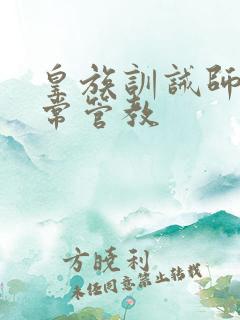 皇族訓誡師
常管教
方曉利
未经同意禁止转载